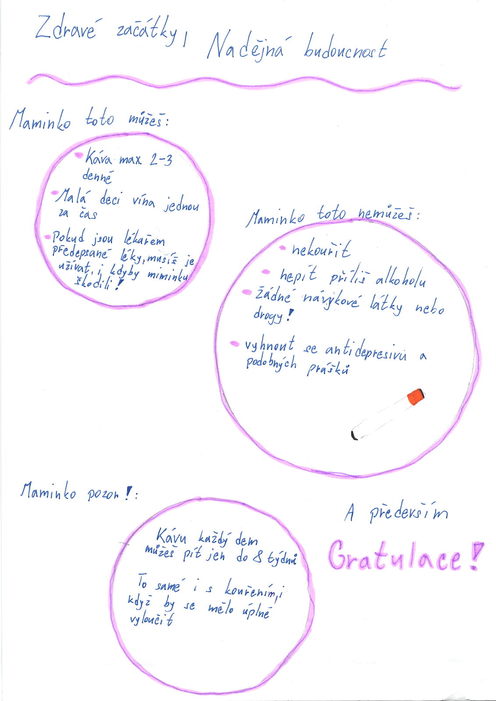 Zdravé začátky, Nadějná budoucnost
Maminko toto můžeš:
Káva max 2-3
denně
Malá deci vína jednou
za čas
Pokud jsou lékařem
předepsané léky, musíš je
užívat, i kdyby miminku
škodili!
Maminko toto nemůžeš:
nekouřit
nepít příliš alkoholu
žádné návykové látky nebo
drogy!
vyhnout se antidepresivů a
podobných prášků
Maminko pozor!:
Kávu každý dem
můžeš pít jen do 8 týdnů
To samé i s kouřením, i
když by se mělo úplně
vyloučit
A především
Gratulace!